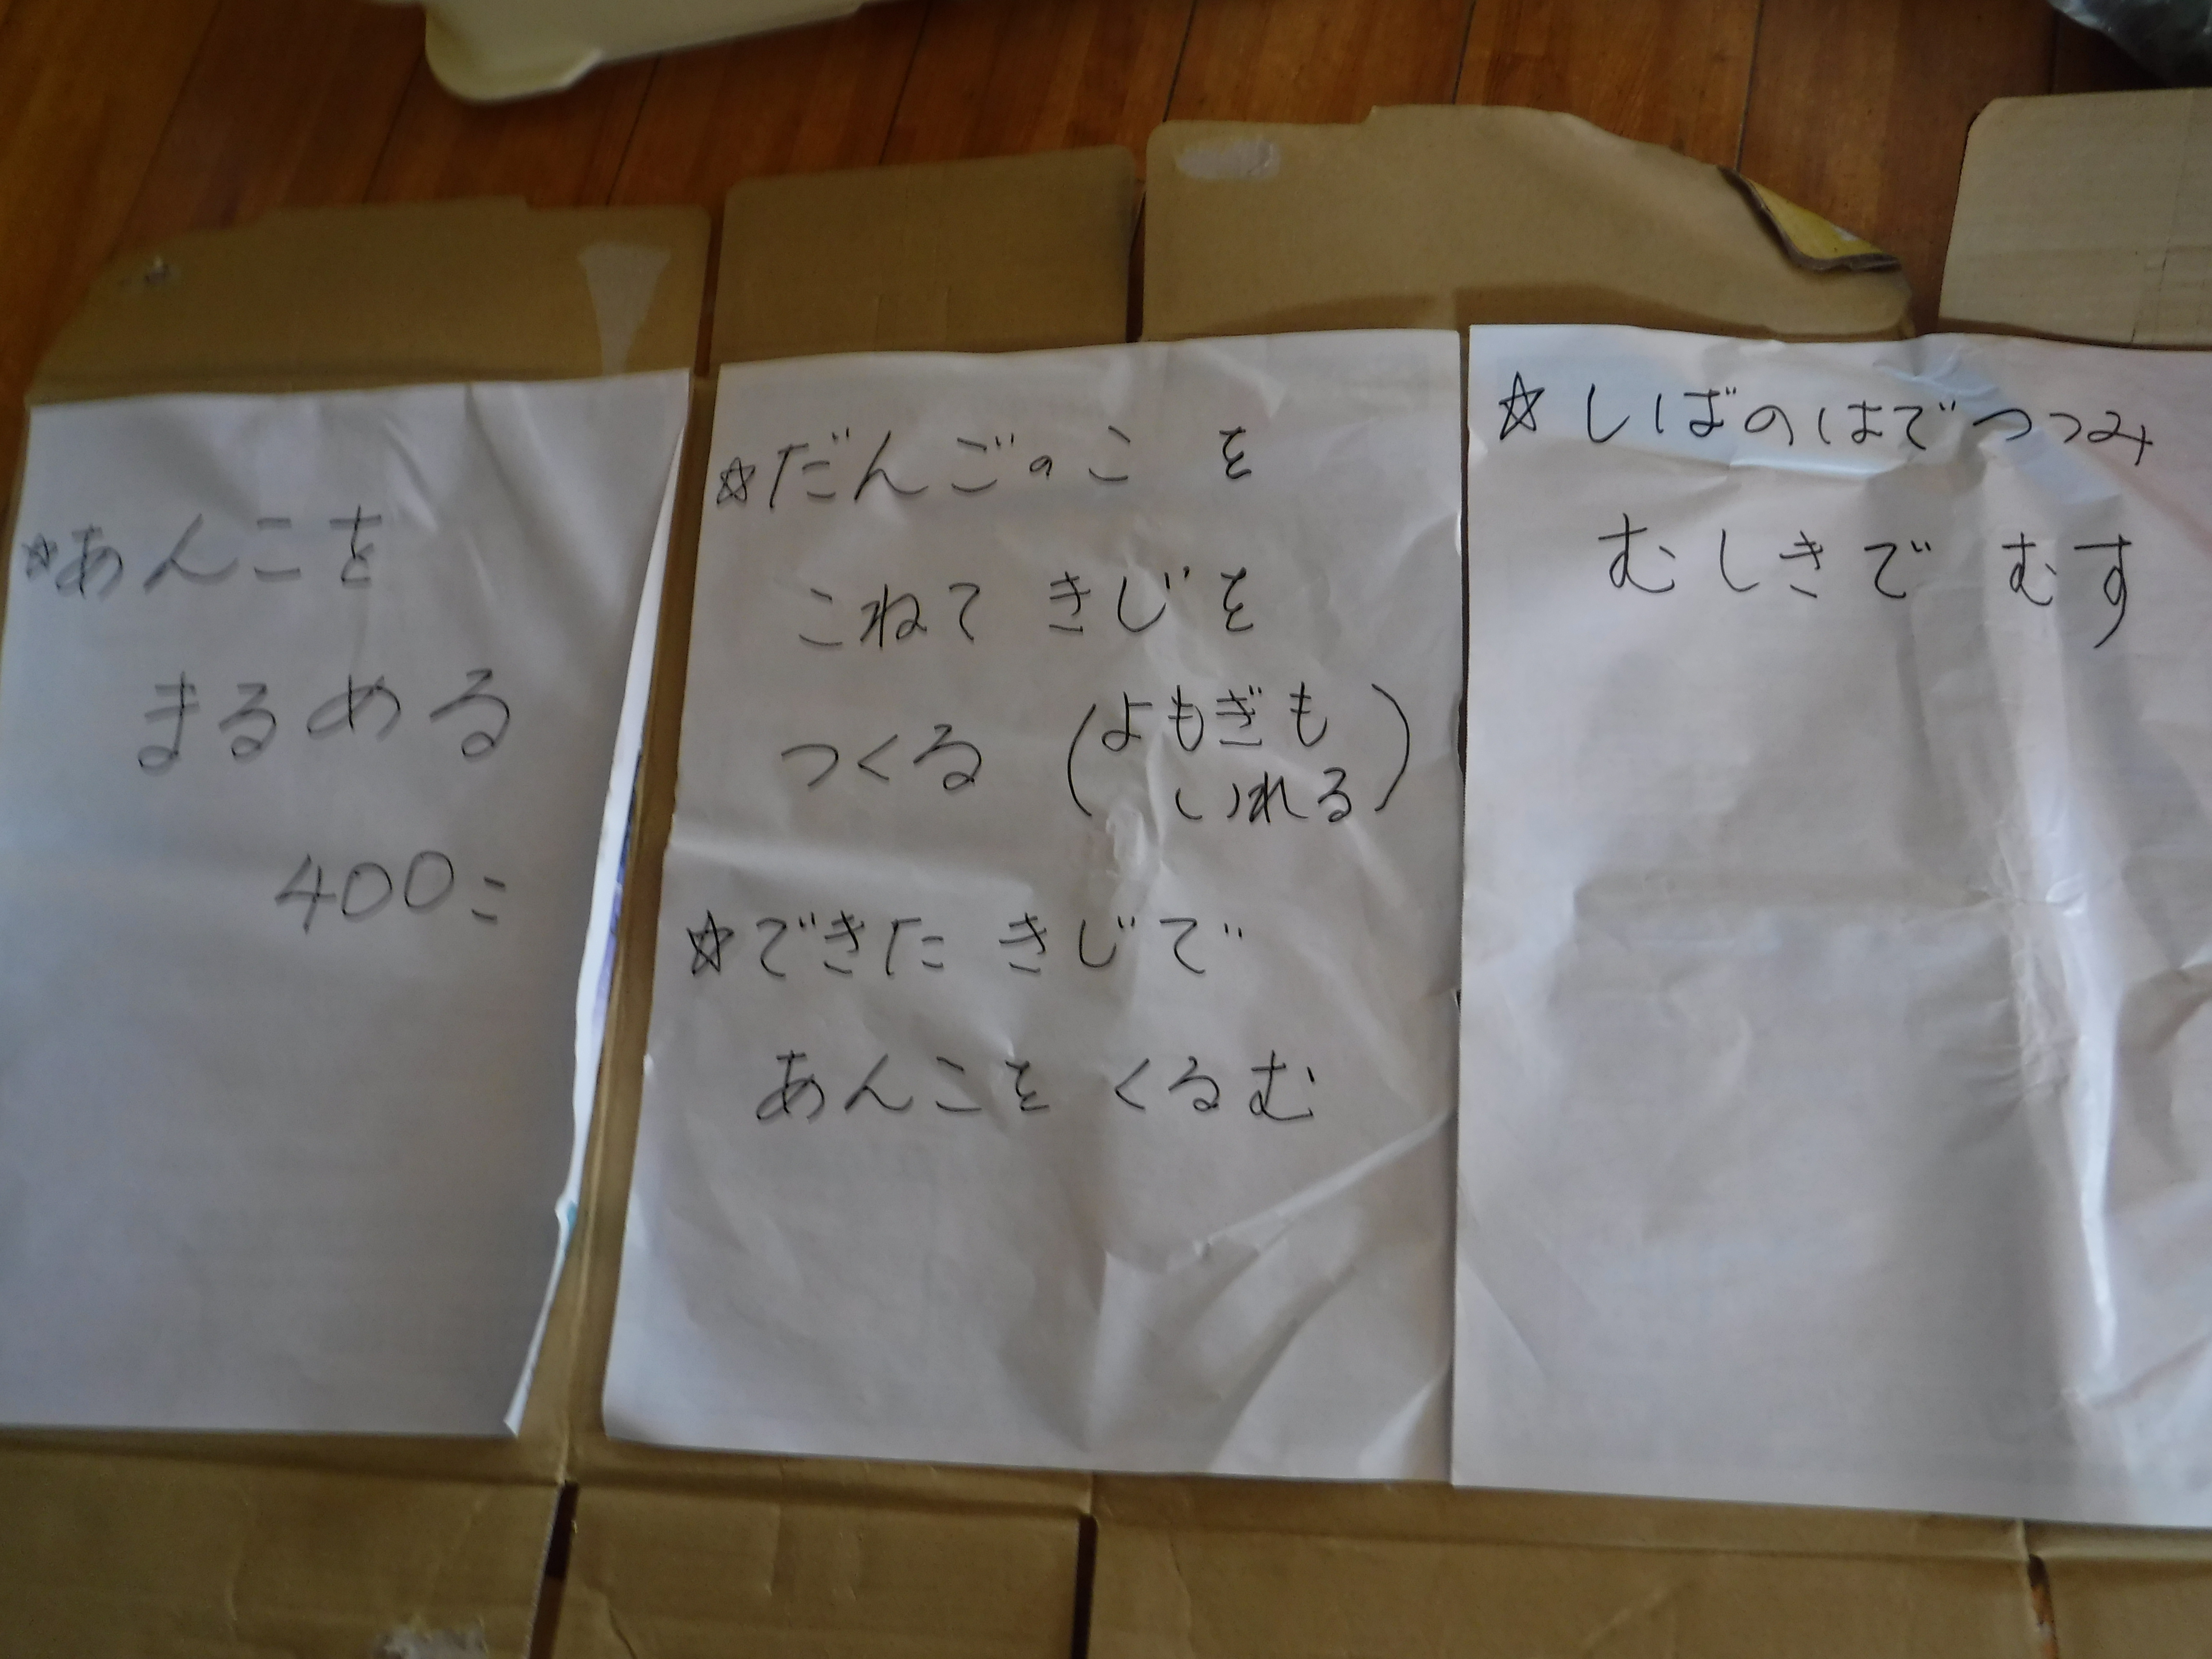 ☆あんこを
まるめる
400こ
☆だんごのこ を
こねて きじを
つくる (よもぎも
いれる)
☆できた きじで
あんこを くるむ
☆しばのはで つつみ
むしきで むす